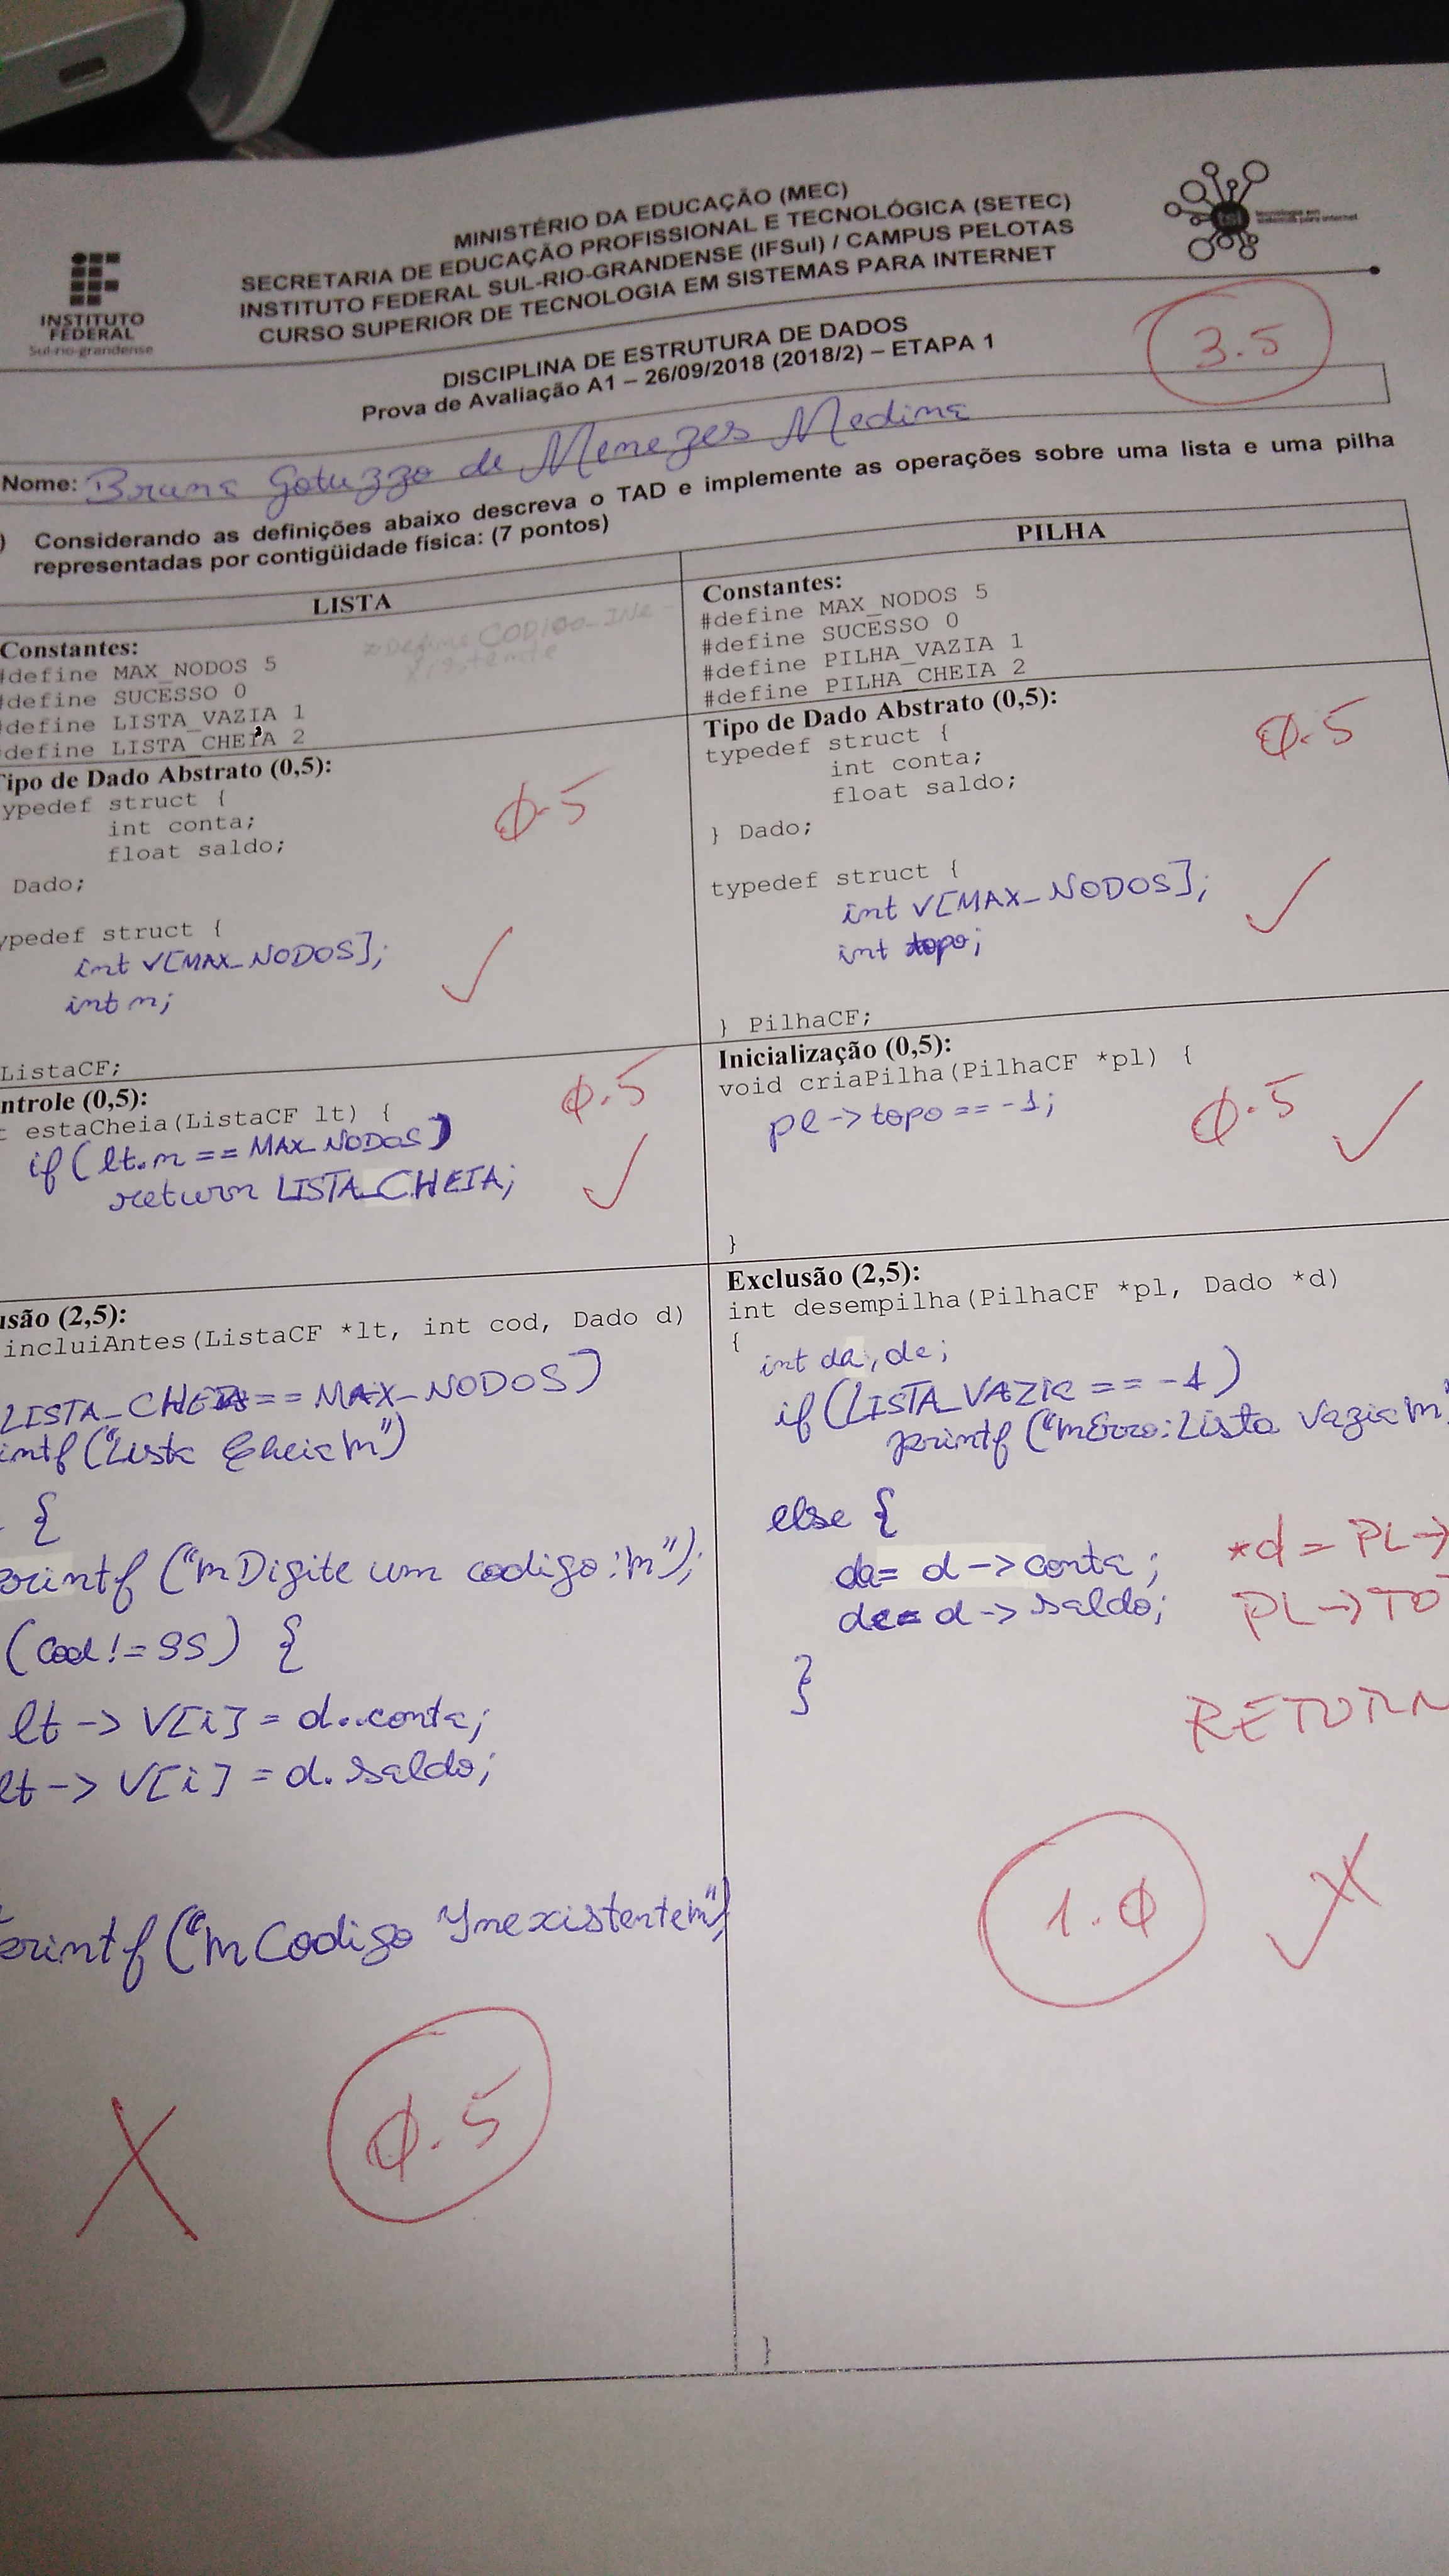 MINISTÉRIO DA EDUCAÇÃO (MEC)
SECRETARIA DE EDUCAÇÃO PROFISSIONAL E TECNOLÓGICA (SETEC)
INSTITUTO FEDERAL SUL-RIO-GRANDENSE (IFSul) / CAMPUS PELOTAS
CURSO SUPERIOR DE TECNOLOGIA EM SISTEMAS PARA INTERNET
INSTITUTO
FEDERAL
Sul-rio-grandense
tsi
tecnologia em
sistemas para internet
DISCIPLINA DE ESTRUTURA DE DADOS
Prova de Avaliação A1 – 26/09/2018 (2018/2) – ETAPA 1
3.5
Nome: Bruna Gotuzzo de Menezes Medina
) Considerando as definições abaixo descreva o TAD e implemente as operações sobre uma lista e uma pilha
representadas por contigüidade física: (7 pontos)
LISTA
Constantes:
#define MAX_NODOS 5
#define SUCESSO 0
#define LISTA_VAZIA 1
#define LISTA_CHEIA 2
#Define CODIGO_INe-
xistente
Tipo de Dado Abstrato (0,5):
typedef struct {
int conta;
float saldo;
Dado;
0.5
ypedef struct {
int v[MAX_NODOS];
int n;
ListaCF;
ntrole (0,5):
t estaCheia(ListaCF lt) {
if (lt.n == MAX_NODOS)
return LISTA_CHEIA;
0.5
usão (2,5):
incluiAntes(ListaCF *lt, int cod, Dado d)
LISTA_CHEIA == MAX_NODOS)
intf ("Lista Cheia\n")
{
printf ("\nDigite um codigo:\n");
(cod != 99) {
lt -> v[i] = d.conta;
lt -> v[i] = d.saldo;
printf ("\nCodigo Inexistente\n")
0.5
PILHA
Constantes:
#define MAX_NODOS 5
#define SUCESSO 0
#define PILHA_VAZIA 1
#define PILHA_CHEIA 2
Tipo de Dado Abstrato (0,5):
typedef struct {
int conta;
float saldo;
} Dado;
0.5
typedef struct {
int v[MAX_NODOS];
int topo;
} PilhaCF;
Inicialização (0,5):
void criaPilha(PilhaCF *pl) {
pl -> topo == -1;
0.5
}
Exclusão (2,5):
int desempilha(PilhaCF *pl, Dado *d)
{
int da, de;
if (LISTA_VAZIA == -1)
printf ("\nErro: Lista Vazia\n"
else {
da = d -> conta;
de = d -> saldo;
}
*d = PL->
PL->TO
RETURN
1.0
}